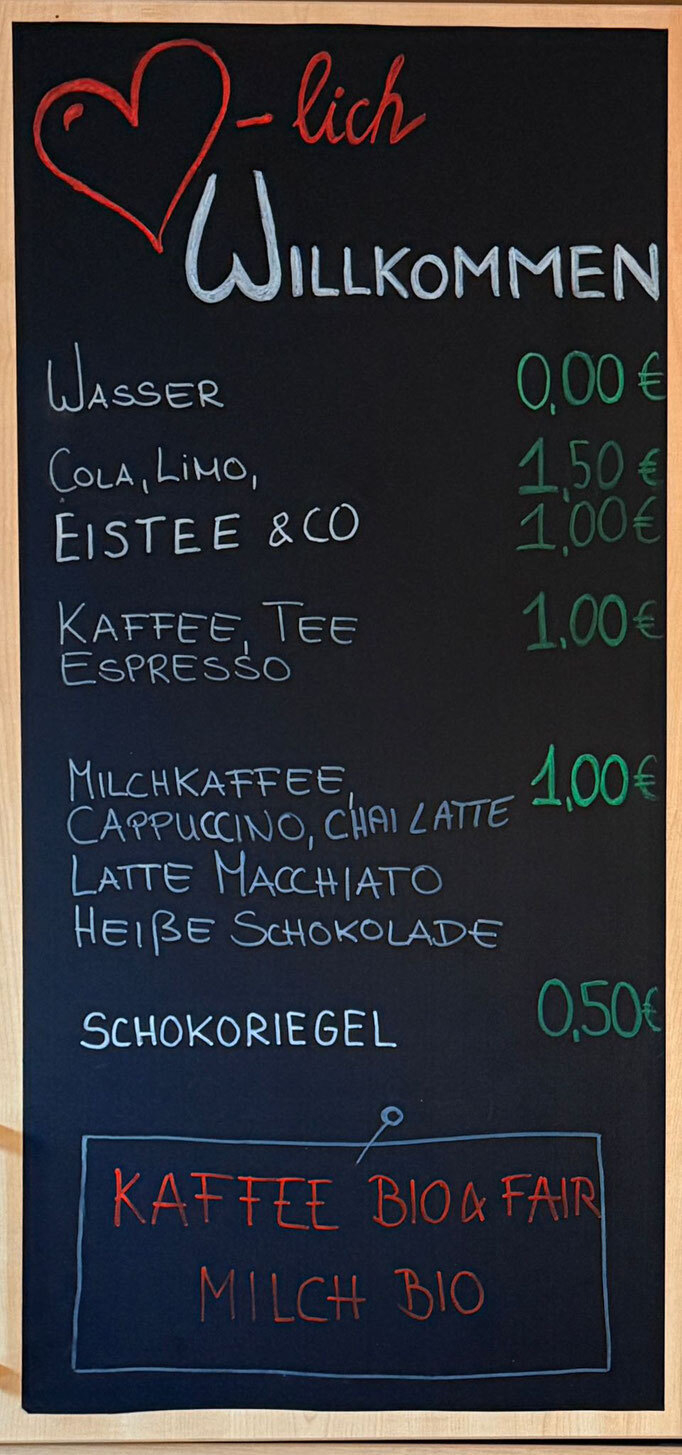 -lich
WILLKOMMEN
WASSER 0,00 €
COLA, LIMO, 1,50 €
EISTEE & CO 1,00 €
KAFFEE, TEE 1,00 €
ESPRESSO
MILCHKAFFEE, 1,00 €
CAPPUCCINO, CHAI LATTE
LATTE MACCHIATO
HEIßE SCHOKOLADE
SCHOKORIEGEL 0,50 €
KAFFEE BIO & FAIR
MILCH BIO